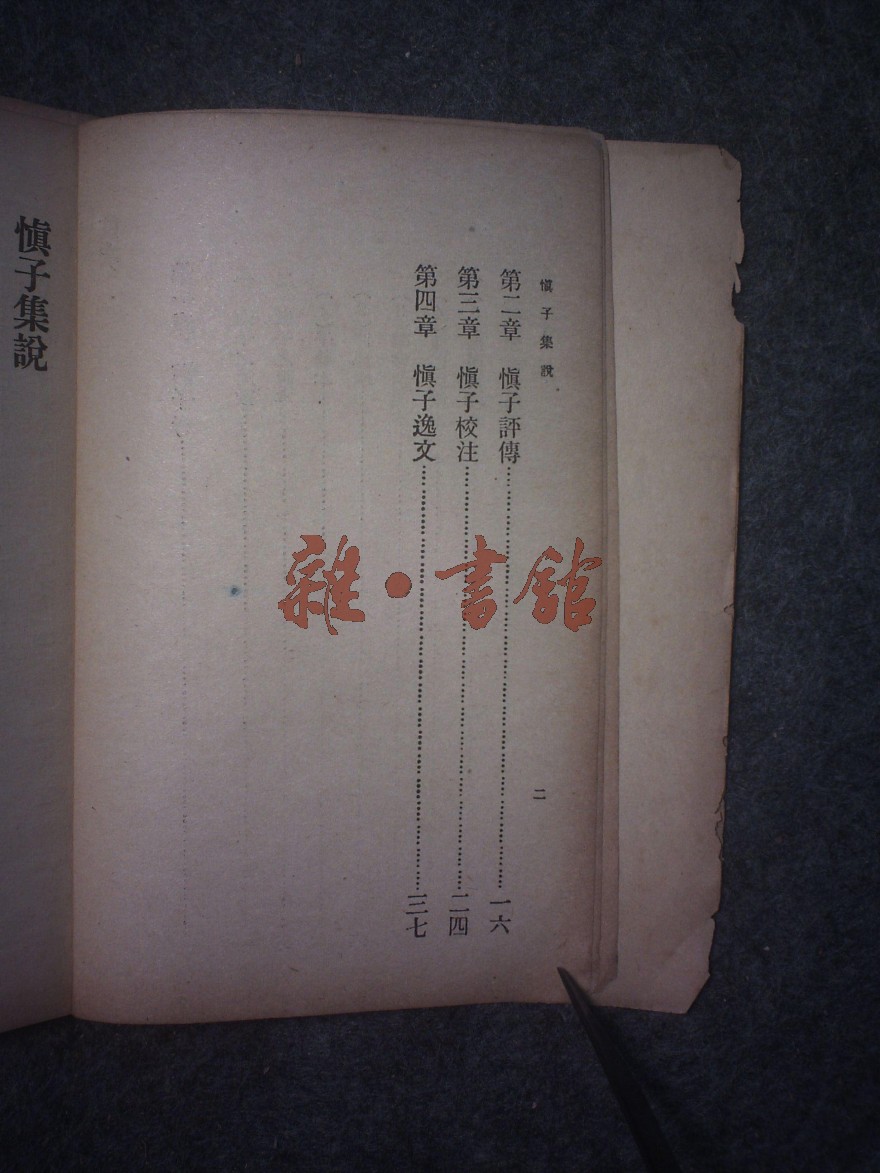 愼子集說
第二章　愼子評傳……一六
第三章　愼子校注……二四
第四章　愼子逸文……三七
二
愼子集說
雜・書館